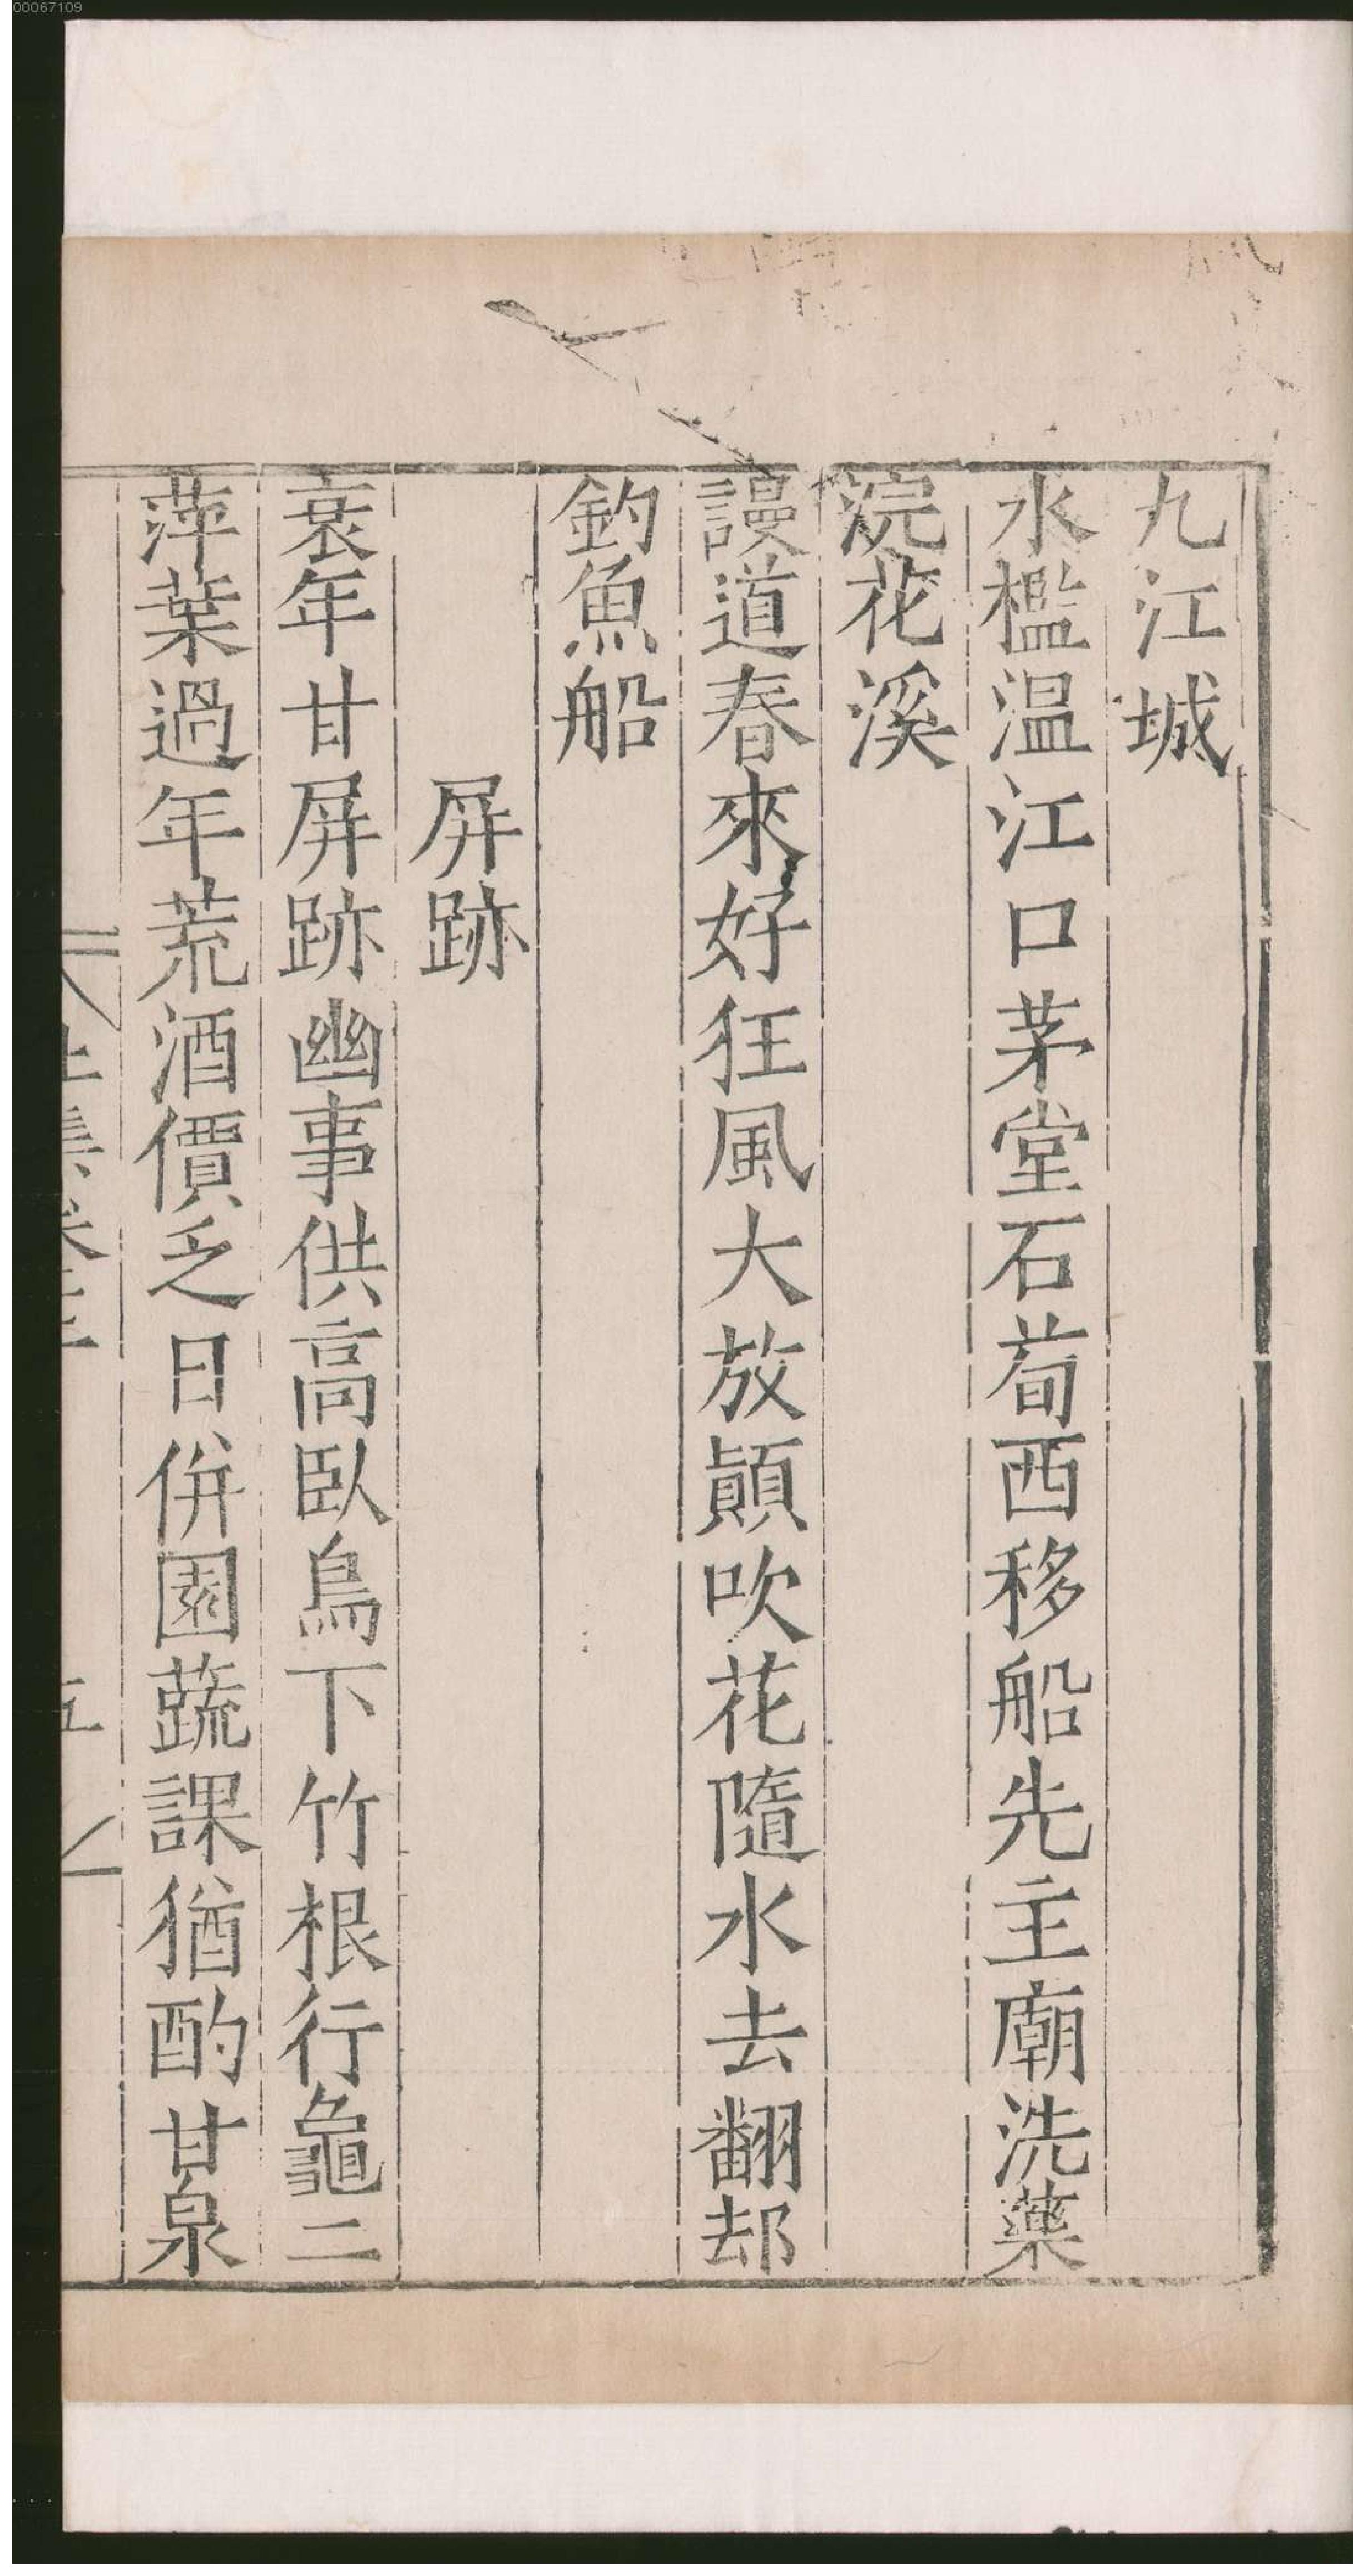 00067109
九江城
水檻温江口茅堂石荀西移船先主廟洗藥
浣花溪
謾道春來好狂風大放顛吹花隨水去翻却
釣魚船
屏跡
衰年甘屏跡幽事供高臥鳥下竹根行龜二
萍葉過年荒酒價乏日併園蔬課猶酌甘泉